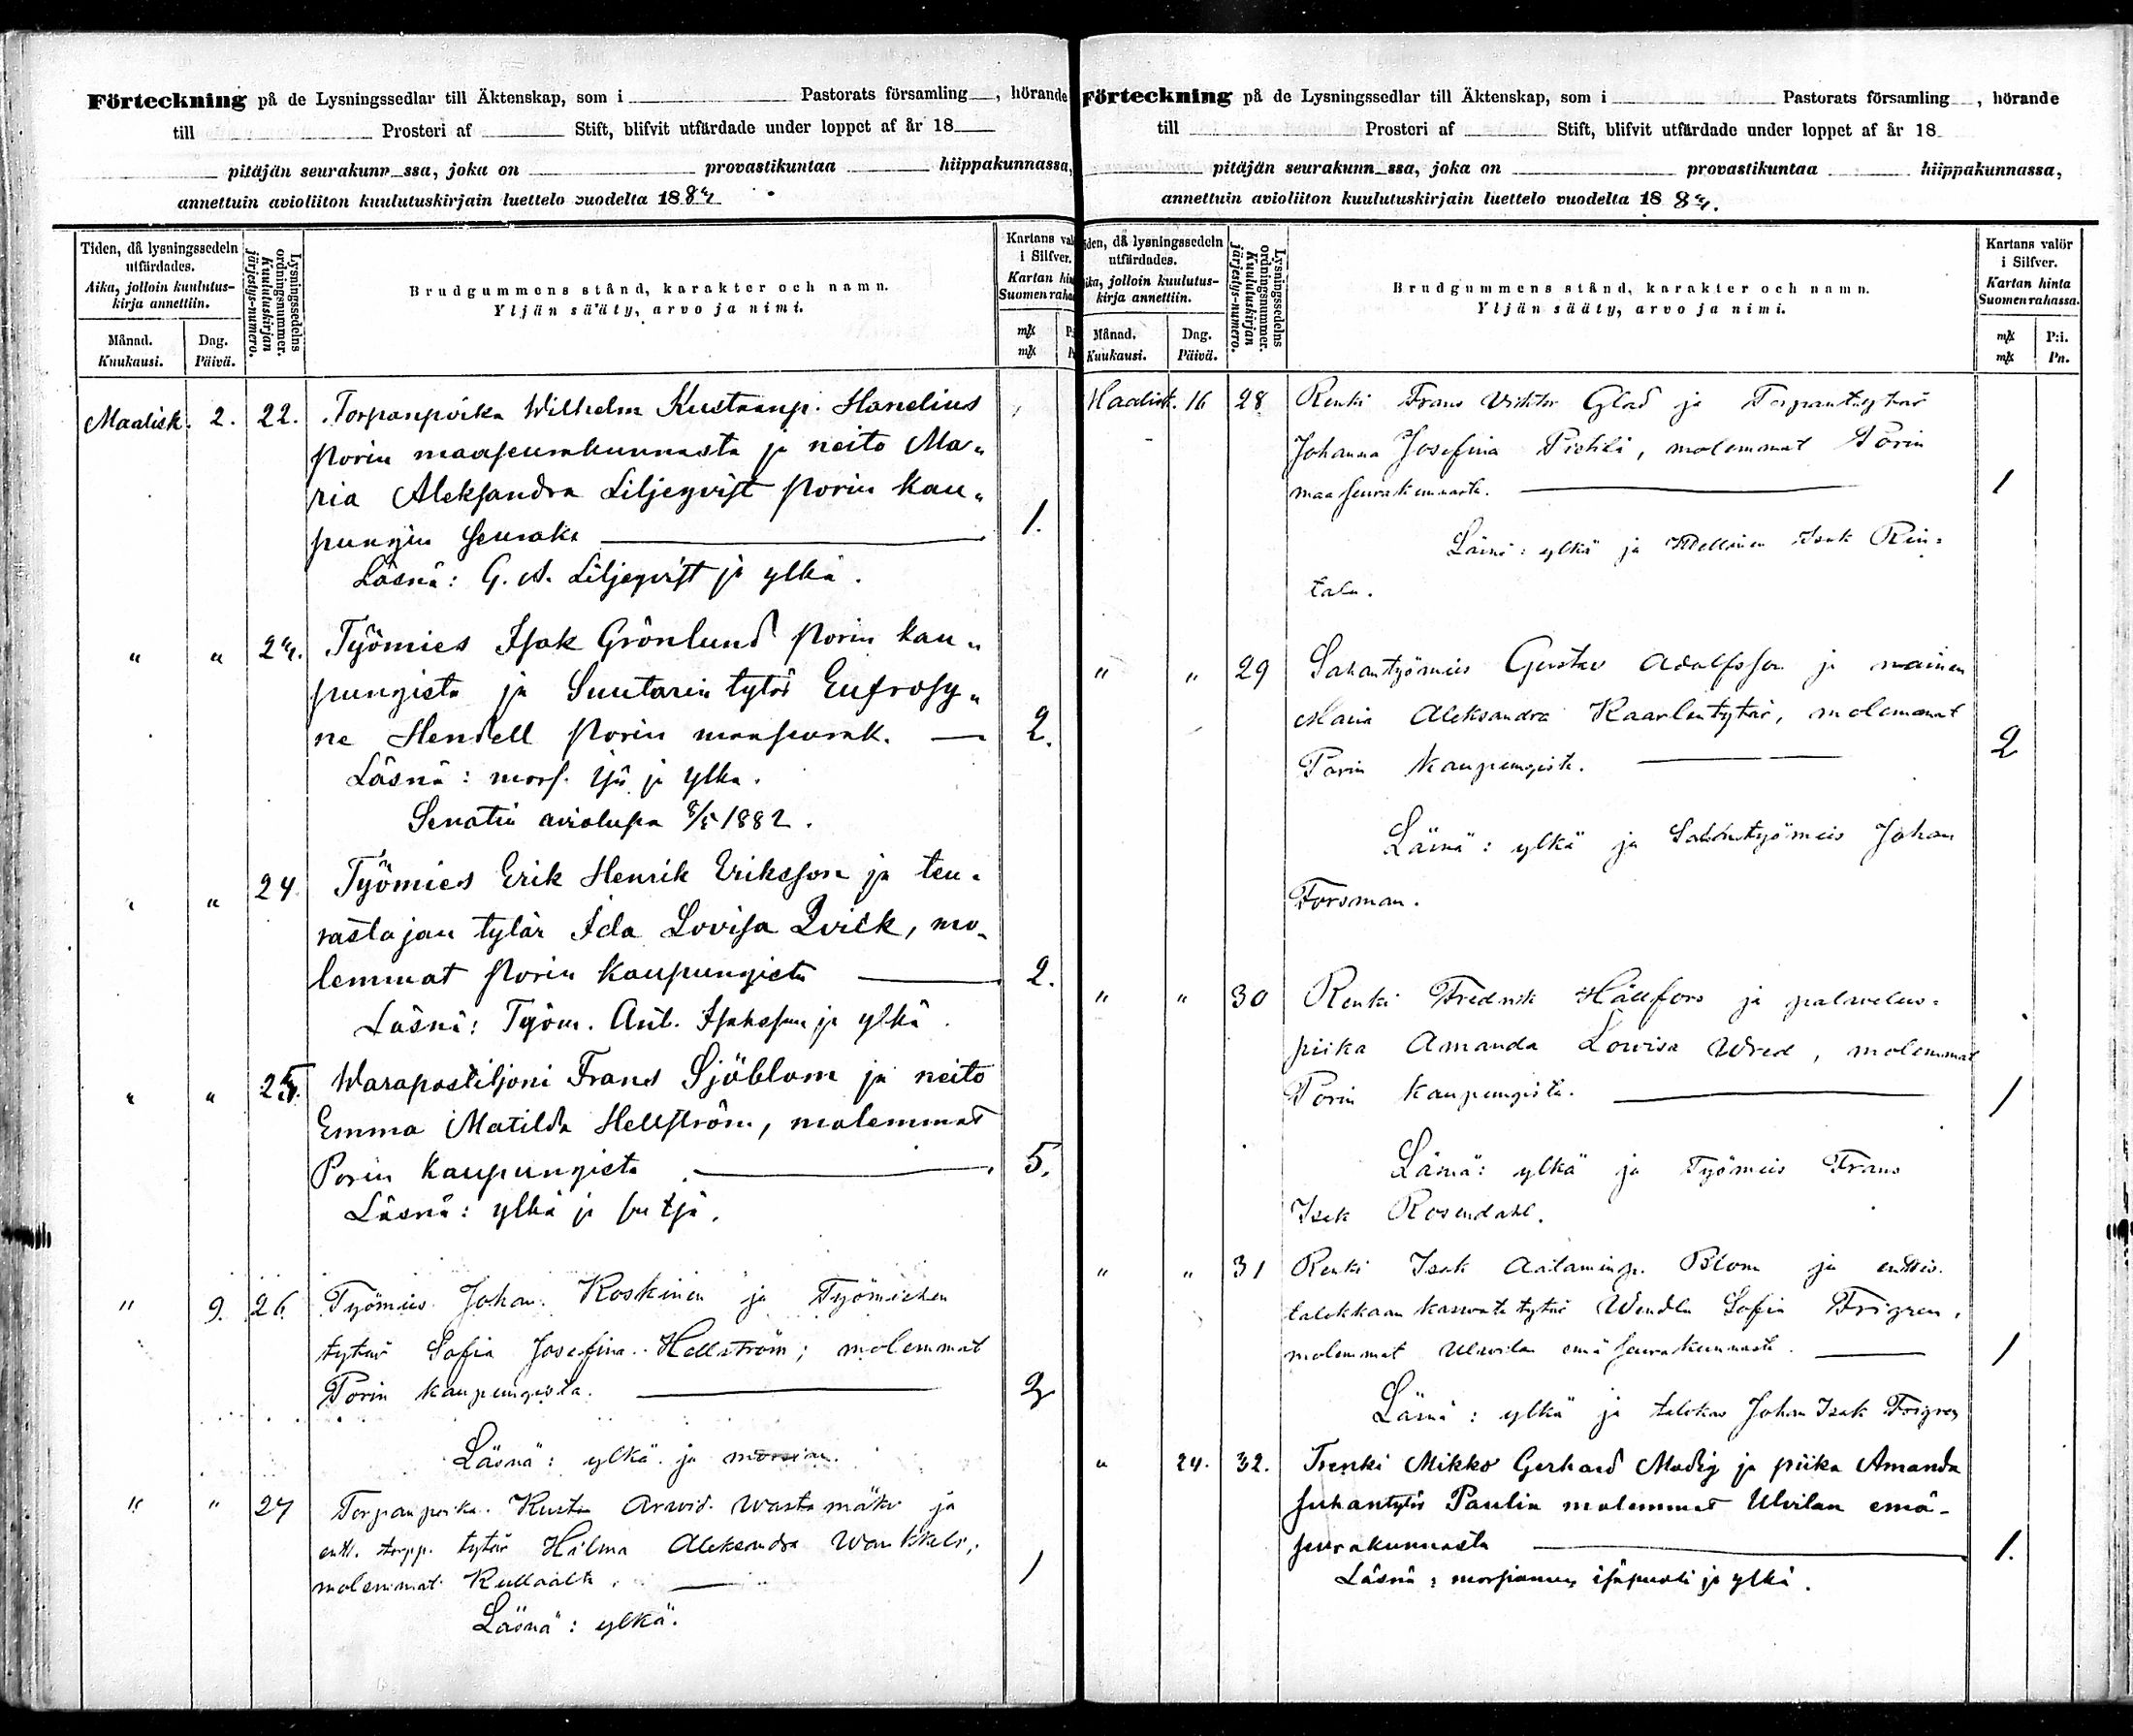 Förteckning på de Lysningssedlar till Äktenskap, som i Pastorats församling , hörande
till Prosteri af Stift, blifvit utfärdade under loppet af år 18
pitäjän seurakunn ssa, joka on provastikuntaa hiippakunnassa,
annettuin avioliiton kuulutuskirjain luettelo vuodelta 1884
Tiden, då lysningssedeln utfärdades.
Aika, jolloin kuulutus-
kirja annettiin.
Månad.
Kuukausi.
Dag.
Päivä.
Lysningssedelns
ordningsnummer.
Kuulutuskirjan
järjestys-numero.
Brudgummens stånd, karakter och namn.
Yljän sääty, arvo ja nimi.
Kartans val
i Silfver.
Kartan hin
Suomen raha
Maalisk. 2. 22. Torpanpoika Wilhelm Kustaanp. Hanelius
Porin maaseurakunnasta ja neito Ma„
ria Aleksandra Liljeqvist Porin kau„
pungin seurak. 1.
Läsnä: G. A. Liljeqvist ja ylkä.
" " 24. Työmies Isak Grönlund Porin kau„
pungista ja Suutarin tytär Eufrosy„
ne Hendell Porin maaseurak. 2.
Läsnä: mors. isä ja ylkä.
Senatin aviolupa 8/5 1882.
" " 24 Työmies Erik Henrik Eriksson ja teu„
rastajan tytär Ida Lovisa Qvick, mo„
lemmat Porin kaupungista 2.
Läsnä: Työm. Ant. Isaksson ja ylkä.
" " 25. Warapostiljoni Frans Sjöblom ja neito
Emma Matilda Hellström, molemmat
Porin kaupungista 5.
Läsnä: ylkä ja
" 9. 26. Työmies Johan Koskinen ja Työmiehen
tytär Sofia Josefina Hellström; molemmat
Porin kaupungista. 2
Läsnä: ylkä ja morsian.
" " 27 Torpanpoika Kusta Arwid Wastamäki ja
entt. torpp. tytär Hilma Aleksandra
molemmat Kullaalta. 1
Läsnä: ylkä.
Förteckning på de Lysningssedlar till Äktenskap, som i Pastorats församling , hörande
till Prosteri af Stift, blifvit utfärdade under loppet af år 18
pitäjän seurakunn ssa, joka on provastikuntaa hiippakunnassa,
annettuin avioliiton kuulutuskirjain luettelo vuodelta 1884.
iden, då lysningssedeln
utfärdades.
ika, jolloin kuulutus-
kirja annettiin.
Månad.
Kuukausi.
Dag.
Päivä.
Lysningssedelns
ordningsnummer.
Kuulutuskirjan
järjestys-numero.
Brudgummens stånd, karakter och namn.
Yljän sääty, arvo ja nimi.
Kartans valör
i Silfver.
Kartan hinta
Suomen rahassa.
P:i.
Pn.
Maalisk. 16 28 Renki Frans Viktor Glad ja Torpantytär
Johanna Josefina, molemmat Porin
maaseurakunnasta. 1
Läsnä: ylkä ja Isak Rin=
tala.
" " 29 Sahantyömies Gustav Adolfsson ja nainen
Maria Aleksandra Kaarlentytär, molemmat
Porin kaupungista. 2
Läsnä: ylkä ja Sahantyömies Johan
Forsman.
" " 30 Renki Fredrik Hällfors ja palvelus=
piika Amanda Lowisa Wred, molemmat
Porin kaupungista. 1
Läsnä: ylkä ja Työmies Frans
Isak Rosendahl.
" " 31 Renki Isak Aataminp. Blom ja entis.
talokkaan kasvatti tytär Wendla Sofia Frigren,
molemmat Ulvilan emä seurakunnasta. 1
Läsnä: ylkä ja talokas Johan Isak Frigren
" 24. 32. Trenki Mikko Gerhard Modig ja piika Amanda
Juhantytär Paulin molemmat Ulvilan emä-
seurakunnasta 1.
Läsnä: morsiamen isäpuoli ja ylkä.